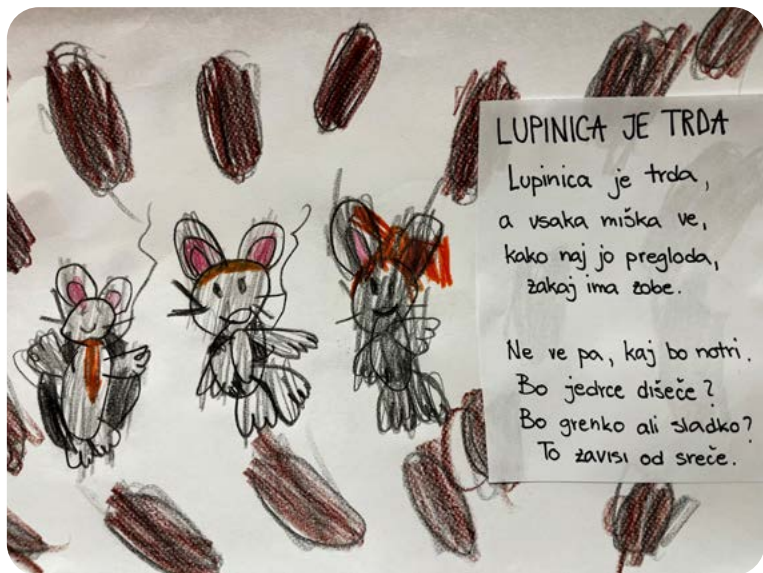 LUPINICA JE TRDA
Lupinica je trda,
a vsaka miška ve,
kako naj jo pregloda,
zakaj ima zobe.
Ne ve pa, kaj bo notri.
Bo jedrce dišeče?
Bo grenko ali sladko?
To zavisi od sreče.